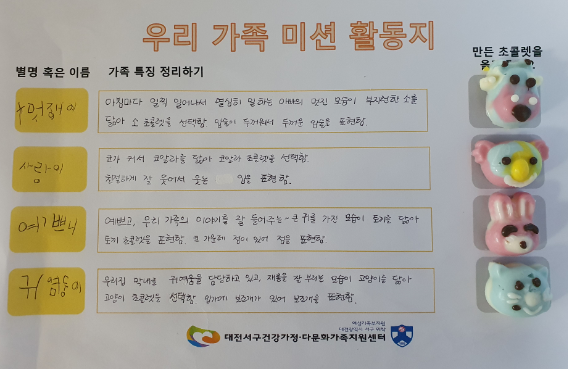 우리 가족 미션 활동지
별명 혹은 이름
가족 특징 정리하기
만든 초콜렛을
멋쟁이
아침마다 일찍 일어나서 열심히 일하는 아빠의 멋진 모습이 부지런한 소를
닮아 소 초콜렛을 선택함. 입술이 두꺼워서 두꺼운 입술을 표현함.
사랑이
코가 커서 코알라를 닮아 코알라 초콜렛을 선택함.
친절하게 잘 웃어서 웃는 입을 표현함.
예쁘니
예쁘고, 우리 가족의 이야기를 잘 들어주는 큰 귀를 가진 모습이 토끼를 닮아
토끼 초콜렛을 표현함. 코 가운데 점이 있어 점을 표현함
귀염둥이
우리집 막내로 귀여움을 담당하고 있고, 재롱을 잘 부리는 모습이 고양이를 닮아
고양이 초콜렛을 선택함. 입가에 보조개가 있어 보조개를 표현함.
여성가족부지원
대전광역시 서구 위탁
대전서구건강가정·다문화가족지원센터